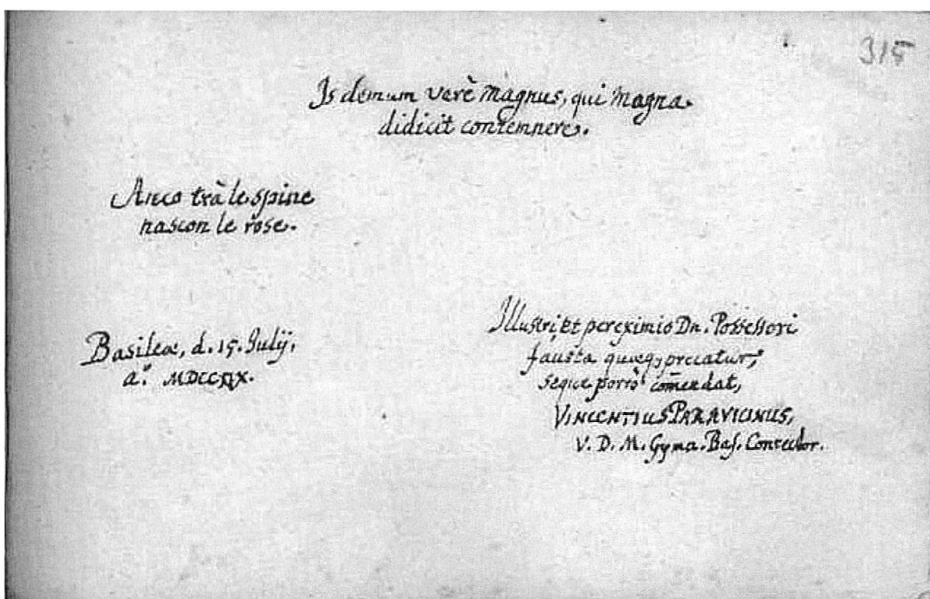 315
Is demum verè magnus, qui magna
didicit contemnere.
Anco trà le spine
nascon le rose.
Basileæ, d. 15. Julij,
a.º
Illustri et pereximio Dn. Possessori
fausta quæq; precatur,
seque porrò comēdat,
VINCENTIUS PARAVICINUS,
V. D. M. Gymn. Bas. Conrector.